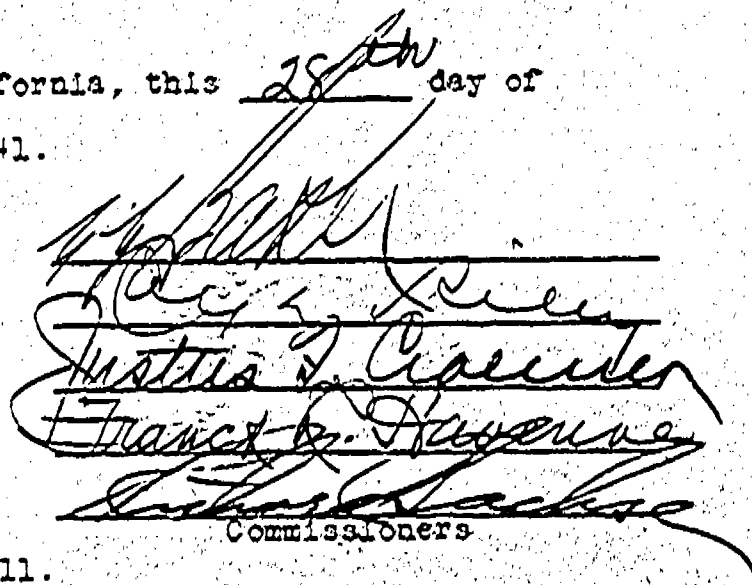 fornia, this 28th day of
41.
Ray L. Riley
Justus F. Craemer
Franck R. Havenner
Commissioners
11.